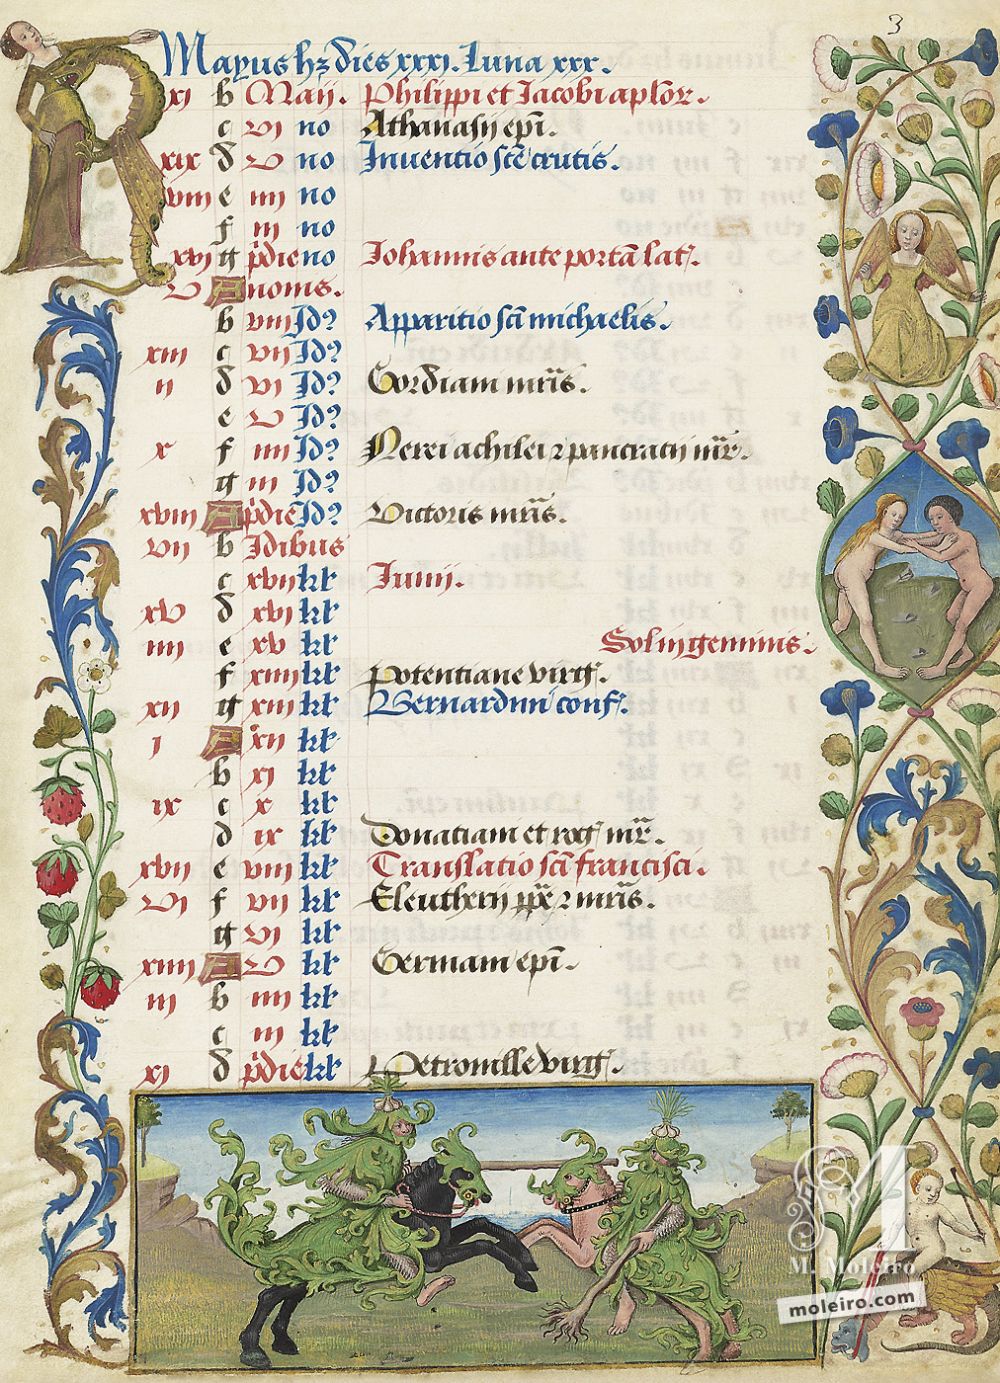 3
Mayus hz dies xxxi. Luna xxx.
xi b Maij. Philippi et Jacobi aplor.
c vi no Athanasij epi.
xix d v no Inventio sce crucis.
viii e iiii no
f iii no
xvi g pdie no Iohannis ante portam lat.
v A nonis.
b viii Id? Apparitio sci michaelis.
xiii c vii Id?
ii d vi Id? Gordiani mris.
e v Id?
x f iiii Id? Nerei achilei z pancracij mr.
g iii Id?
xviii A pdie Id? Victoris mris.
vii b Idibus
c xvii kl Iunij.
xv d xvi kl
iiii e xv kl Sol in geminis.
f xiiii kl Potentiane virg.
xii g xiii kl Bernardini conf.
i A xii kl
b xi kl
ix c x kl
d ix kl Donatiani et rog mr.
xvii e viii kl Translatio sci francisci.
vi f vii kl Eleutherij ppe z mris.
g vi kl
xiiii A v kl Germani epi.
iii b iiii kl
c iii kl
xi d pdie kl Petronille virg.
M
M. Moleiro
moleiro.com